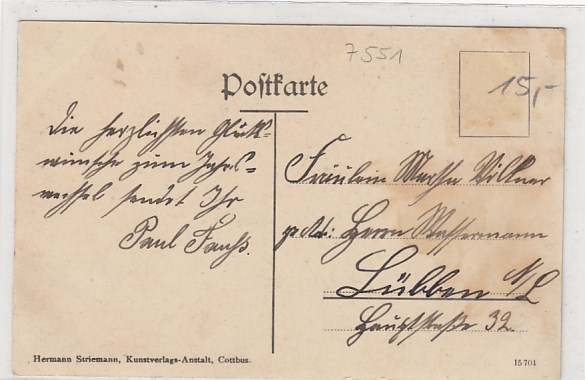 7551
Postkarte
15,-
Die herzlichsten Glück-
wünsche zum Jahres-
wechsel sendet Ihr
Paul
Fräulein Martha
Herrn Wassermann
Lübben N/L
Hauptstraße 32.
Hermann Striemann, Kunstverlags-Anstalt, Cottbus.
15704